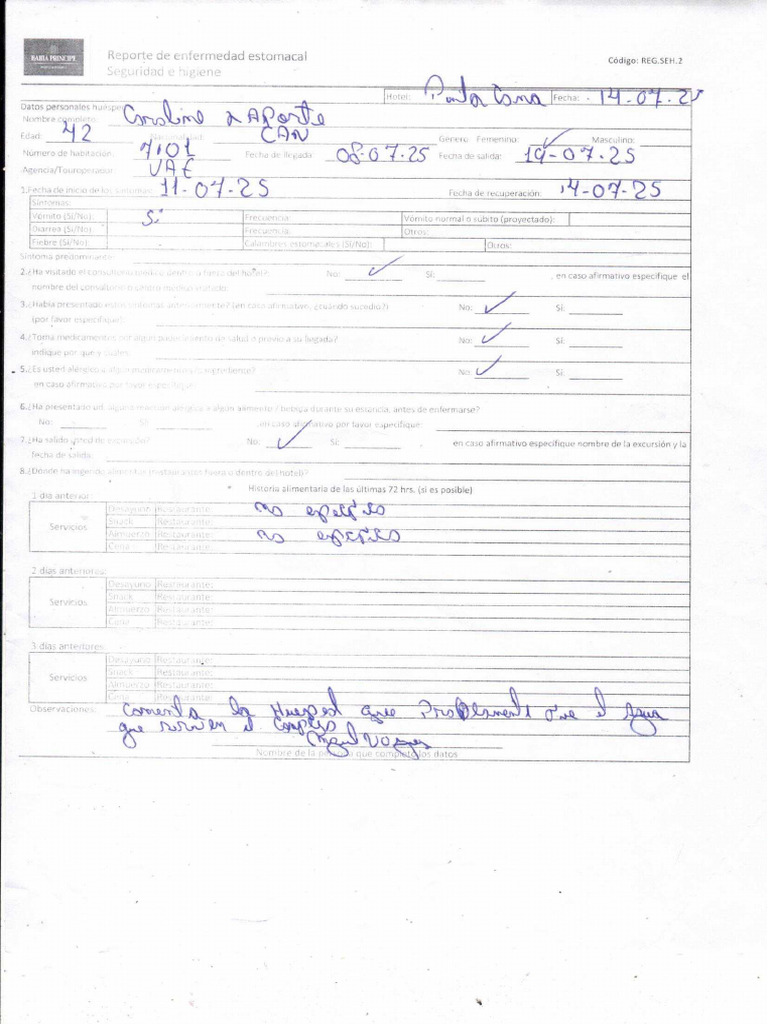 BAHIA PRINCIPE
Reporte de enfermedad estomacal
Seguridad e higiene
Código: REG.SEH.2
Hotel: Punta Cana Fecha: 14-07-25
Datos personales huésped
Nombre completo: Caroline LAPorte
Edad: 42 Nacionalidad: CAN Género Femenino: ✓ Masculino:
Número de habitación: 7101 Fecha de llegada: 08-07-25 Fecha de salida: 19-07-25
Agencia/Touroperador: VAC
1.Fecha de inicio de los síntomas: 11-07-25 Fecha de recuperación: 14-07-25
Síntomas:
Vómito (Sí/No): Si Frecuencia: Vómito normal o súbito (proyectado):
Diarrea (Sí/No): Frecuencia: Otros:
Fiebre (Sí/No): Calambres estomacales (Sí/No): Otros:
Síntoma predominante:
2.¿Ha visitado el consultorio médico dentro o fuera del hotel?: No: ✓ Sí: , en caso afirmativo especifique el
nombre del consultorio o centro médico visitado:
3.¿Había presentado estos síntomas anteriormente? (en caso afirmativo, ¿cuándo sucedió?) No: ✓ Sí:
(por favor especifique):
4.¿Toma medicamentos por algún padecimiento de salud o previo a su llegada? No: ✓ Sí:
indique por qué y cuáles:
5.¿Es usted alérgico a algún medicamento o ingrediente? No: ✓ Sí:
en caso afirmativo por favor especifique:
6.¿Ha presentado ud. alguna reacción alérgica a algún alimento / bebida durante su estancia, antes de enfermarse?
No: Sí: ,en caso afirmativo por favor especifique:
7.¿Ha salido usted de excursión? No: ✓ Sí: en caso afirmativo especifique nombre de la excursión y la
fecha de salida:
8.¿Dónde ha ingerido alimentos (restaurantes fuera o dentro del hotel)?
* Historia alimentaria de las últimas 72 hrs. (si es posible)
1 día anterior:
Servicios
Desayuno Restaurante: no especifico
Snack Restaurante:
Almuerzo Restaurante: no especifico
Cena Restaurante:
2 días anteriores:
Servicios
Desayuno Restaurante:
Snack Restaurante:
Almuerzo Restaurante:
Cena Restaurante:
3 días anteriores:
Servicios
Desayuno Restaurante:
Snack Restaurante:
Almuerzo Restaurante:
Cena Restaurante:
Observaciones: Comenta la Huesped que Probablemente fue el Agua
que sirven el Complejo
Nombre de la persona que completó los datos